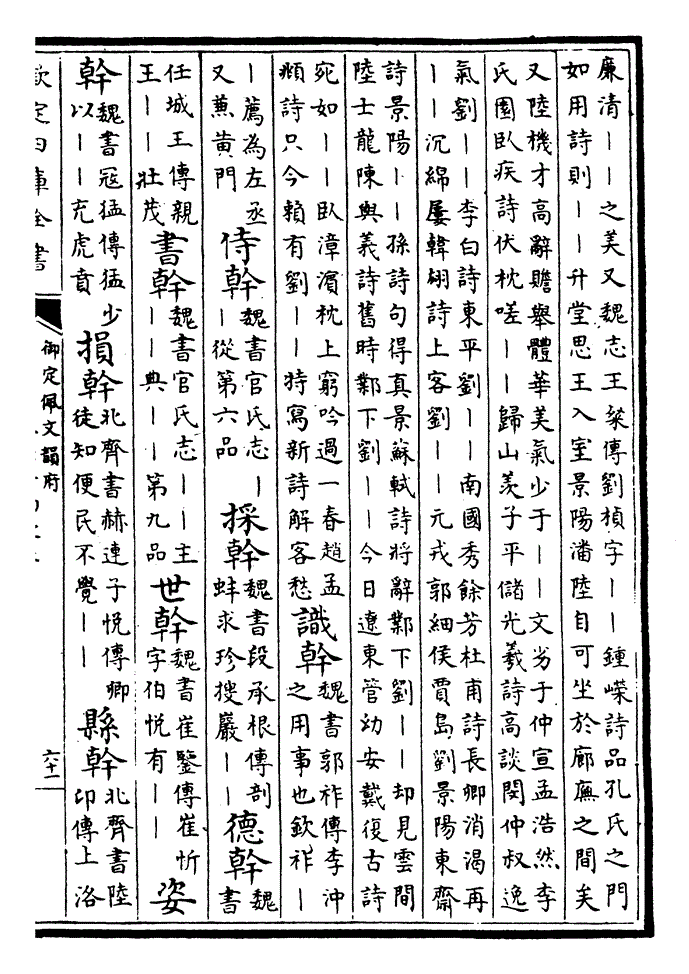 廉清｜｜之美又魏志王粲傳劉楨字｜｜鍾嶸詩品孔氏之門
如用詩則｜｜升堂思王入室景陽潘陸自可坐於廊廡之間矣
又陸機才高辭贍舉體華美氣少于｜｜文劣于仲宣孟浩然李
氏園臥疾詩伏枕嗟｜｜歸山羨子平儲光羲詩高談閔仲叔逸
氣劉｜｜李白詩東平劉｜｜南國秀餘芳杜甫詩長卿消渴再
｜｜沉綿屢韓翃詩上客劉｜｜元戎郭細侯賈島劉景陽東齋
詩景陽｜｜孫詩句得真景蘇軾詩將辭鄴下劉｜｜却見雲間
陸士龍陳與義詩舊時鄴下劉｜｜今日遼東管幼安戴復古詩
宛如｜｜臥漳濱枕上窮吟過一春趙孟
頫詩只今賴有劉｜｜特寫新詩解客愁
識幹
魏書郭祚傳李沖
之用事也欽祚｜
｜薦為左丞
又兼黄門
侍幹
魏書官氏志｜
｜從第六品
採幹
魏書段承根傳剖
蚌求珍搜巖｜｜
德幹
魏
書
任城王傳親
王｜｜壯茂
書幹
魏書官氏志｜｜主
｜｜典｜｜第九品
世幹
魏書崔鑒傳崔忻
字伯悅有｜｜
姿
幹
魏書寇猛傳猛少
以｜｜充虎賁
損幹
北齊書赫連子悅傳卿
徒知便民不覺｜｜
縣幹
北齊書陸
卬傳上洛
欽定四庫全書
御定佩文韻府
六十二